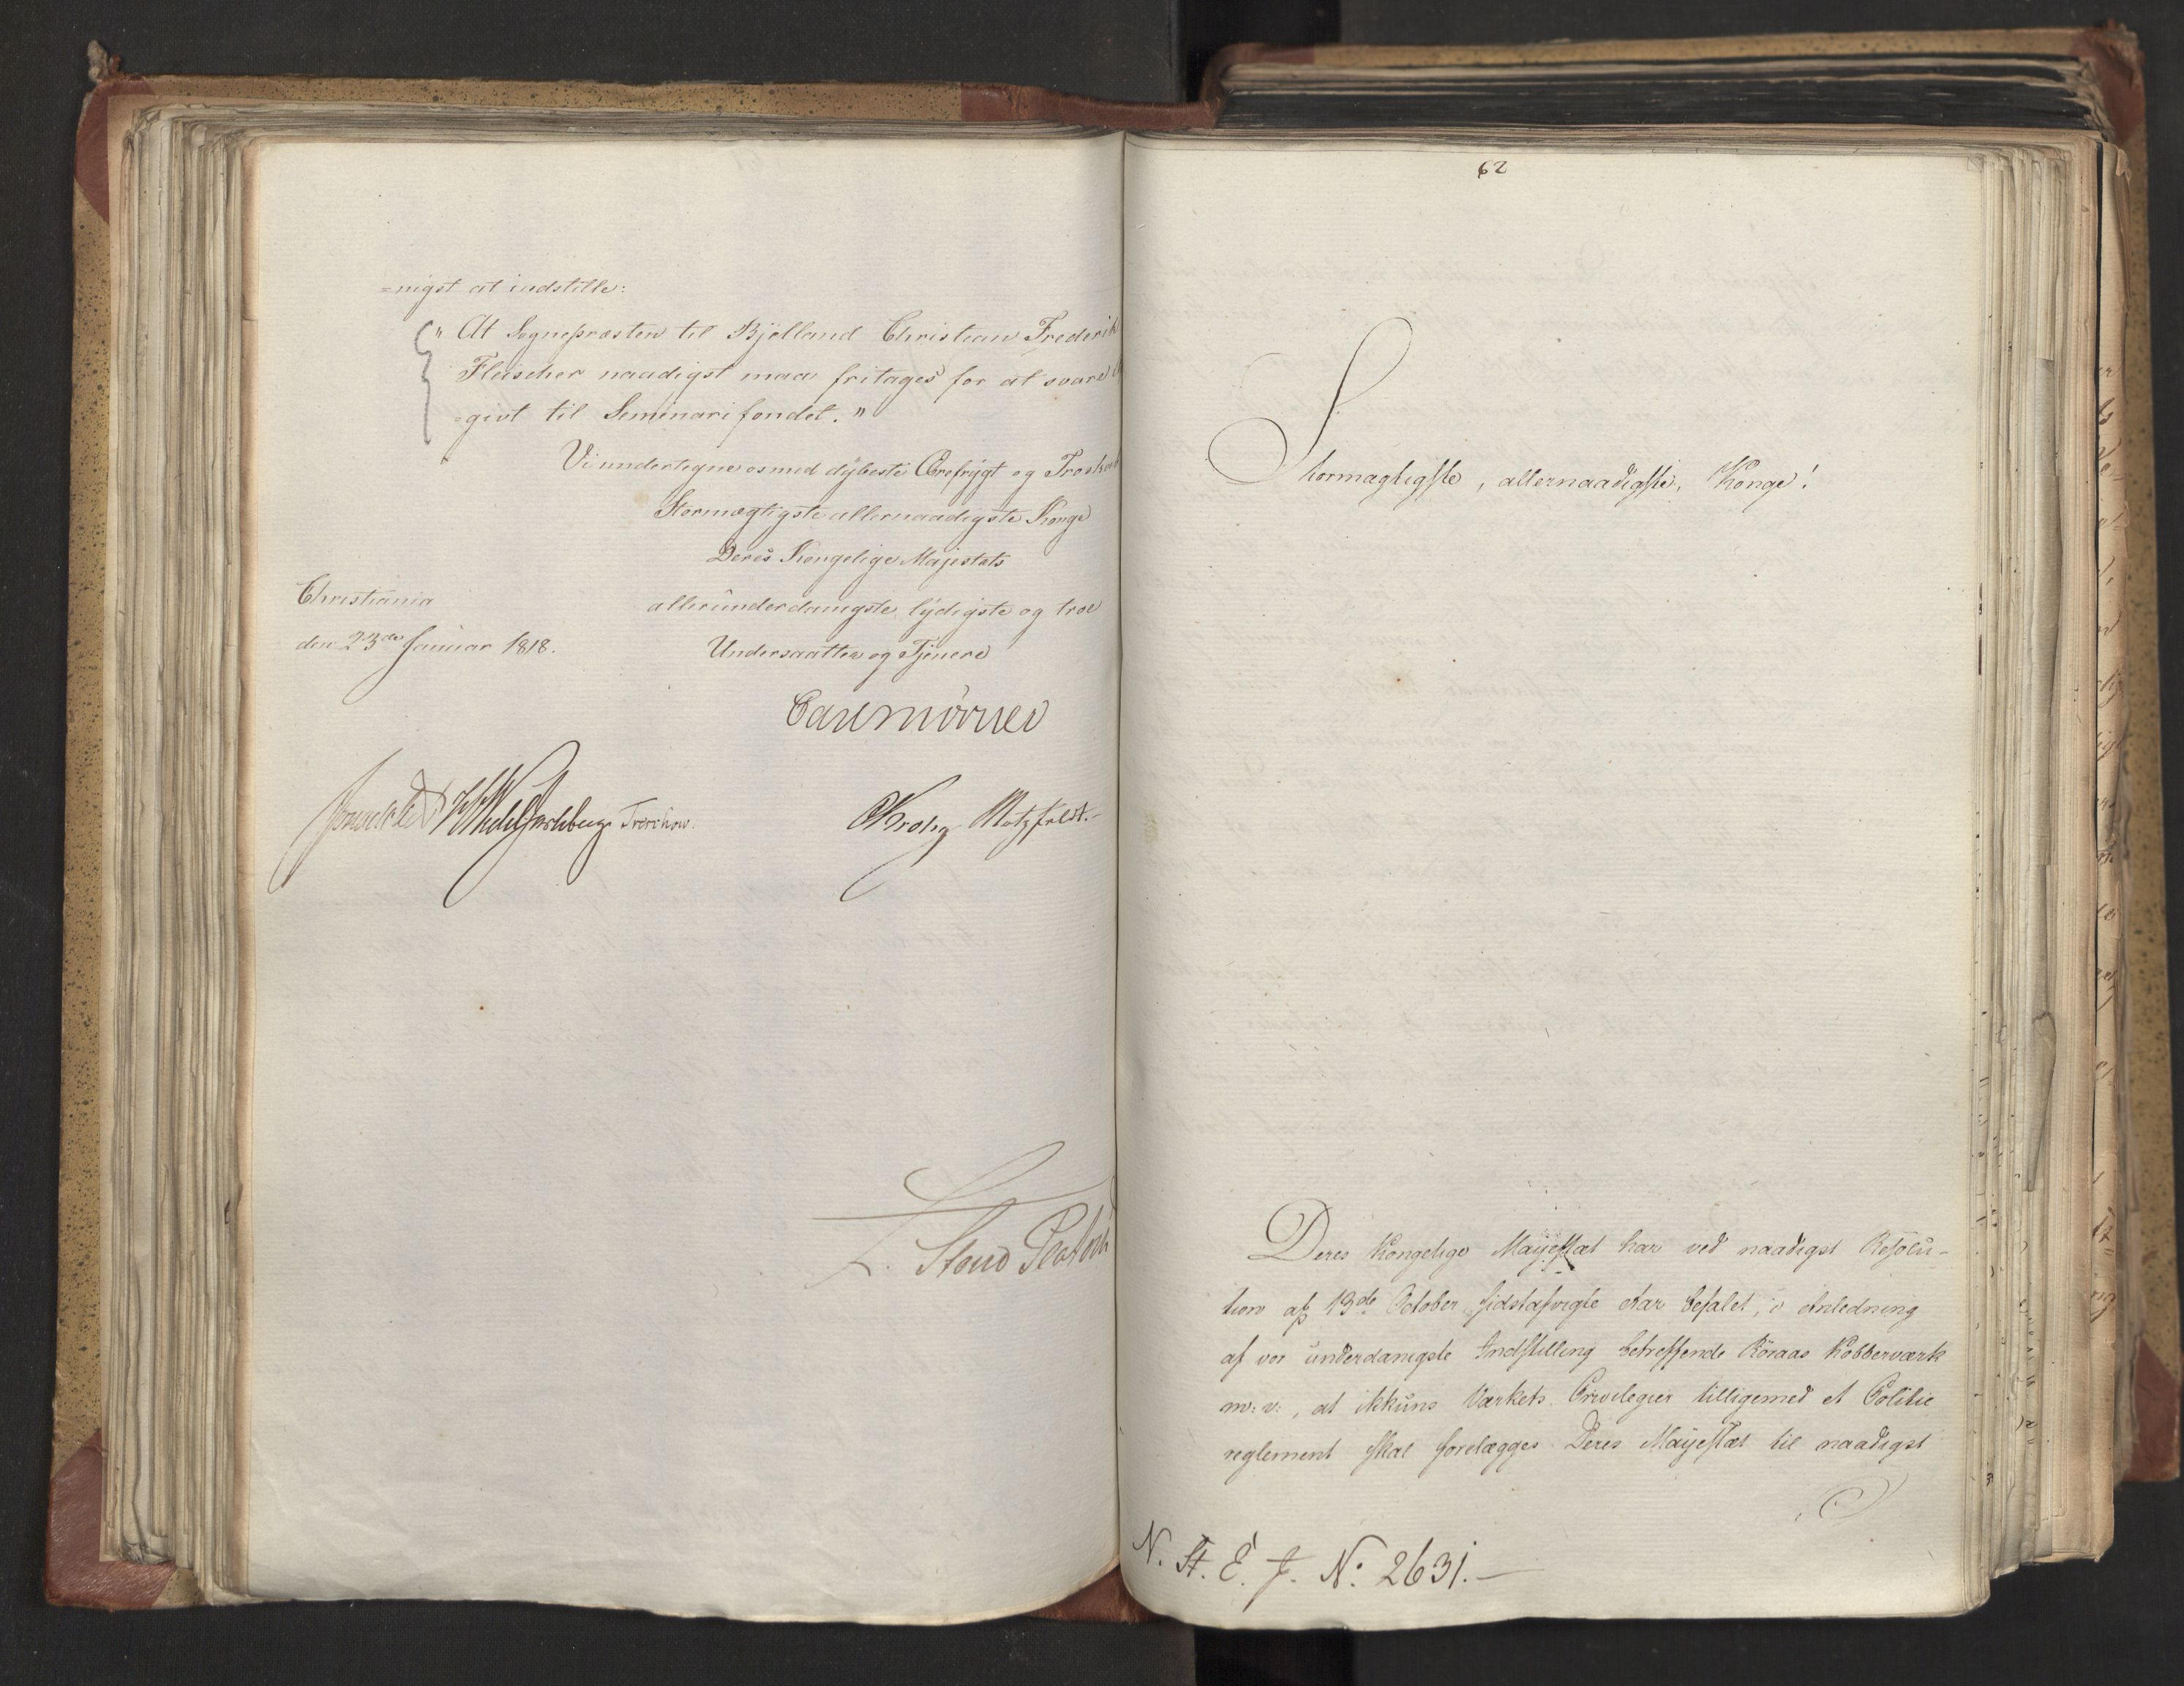 =nigst at indstille:
" At Sognepræsten til Bjelland Christian Frederik
Fleischer naadigst maa fritages for at svare
=givt til Seminarifondet."
Vi undertegne os med dybeste Ærefrygt og Troskab
Stormægtigste allernaadigste Konge
Deres Kongelige Majestæts
Christiania
allerunderdanigste lydigste og troe
den 23de Januar 1818.
Undersaatter og Tjenere
Carl Mörner
Sommerhielm Wedel Jarlsberg Treschow.
Krohg Motzfeldt.
L. Stoud Platou
62
Stormægtigste, allernaadigste, Konge!
Deres Kongelige Majestæt har ved naadigst Resolu-
tion af 13de October sidstafvigte Aar befalet, i Anledning
af vor underdanigste Indstilling betreffende Röraas Kobberværk
m: v:, at ikkuns Værkets Privilegier tilligemed et Politie
reglement skal forelægges Deres Majestæt til naadigst
N. St. E. J. No: 2631.—